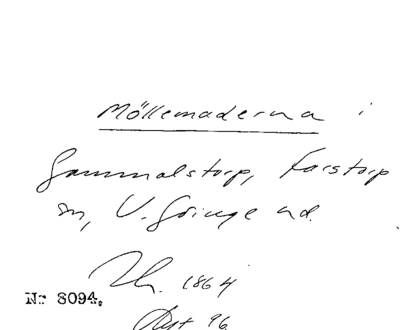 Möllemaderna i
Gammalstorp, Farstorp
sn, V. Göinge hd.
1864
Nr 8094.
96